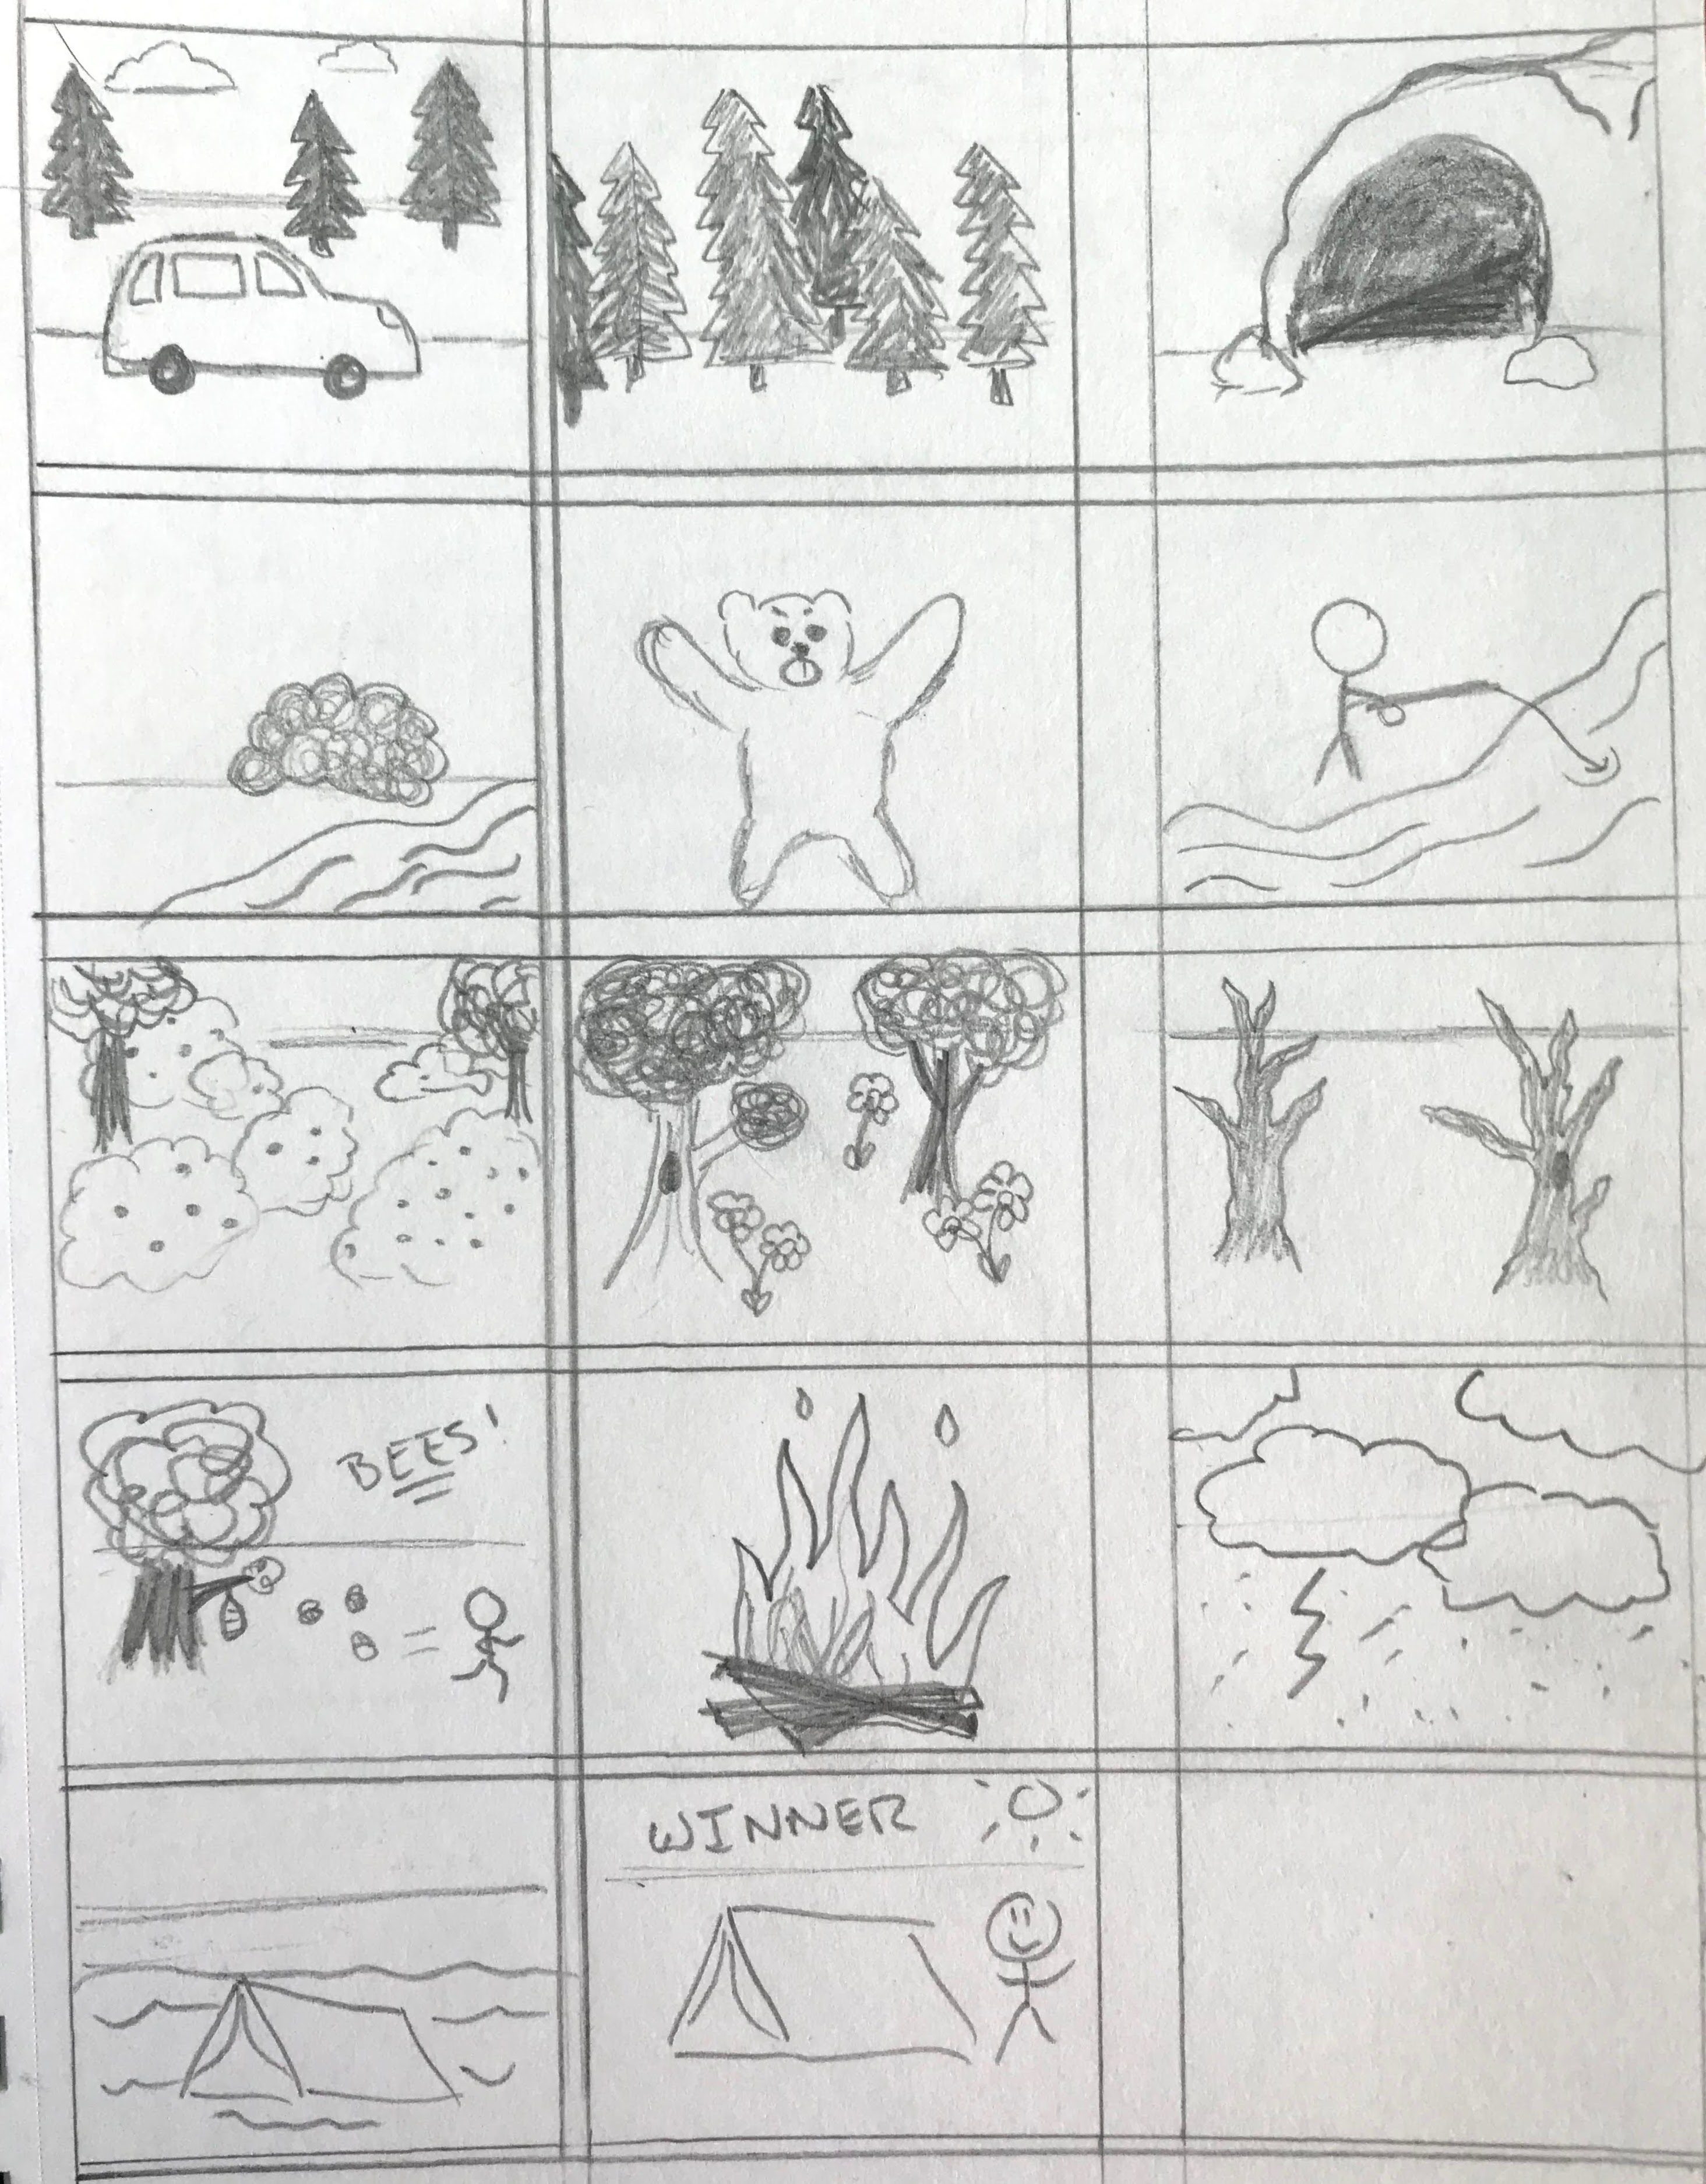 BEES!
WINNER